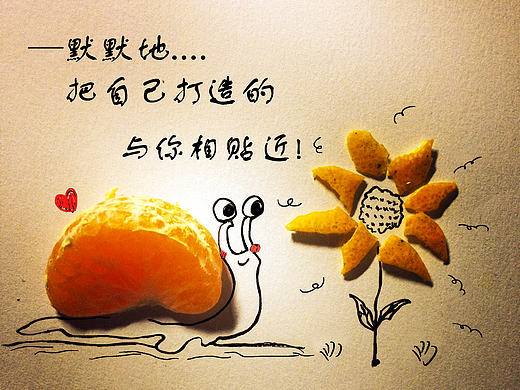 ——默默地....
把自己打造的
与你相贴近!